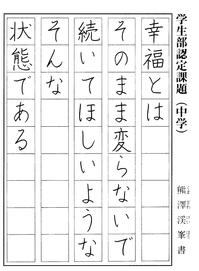 学生部認定課題(中学)
幸福とは
そのまま変らないで
続いてほしいような
そんな
状態である
熊澤渓峯書